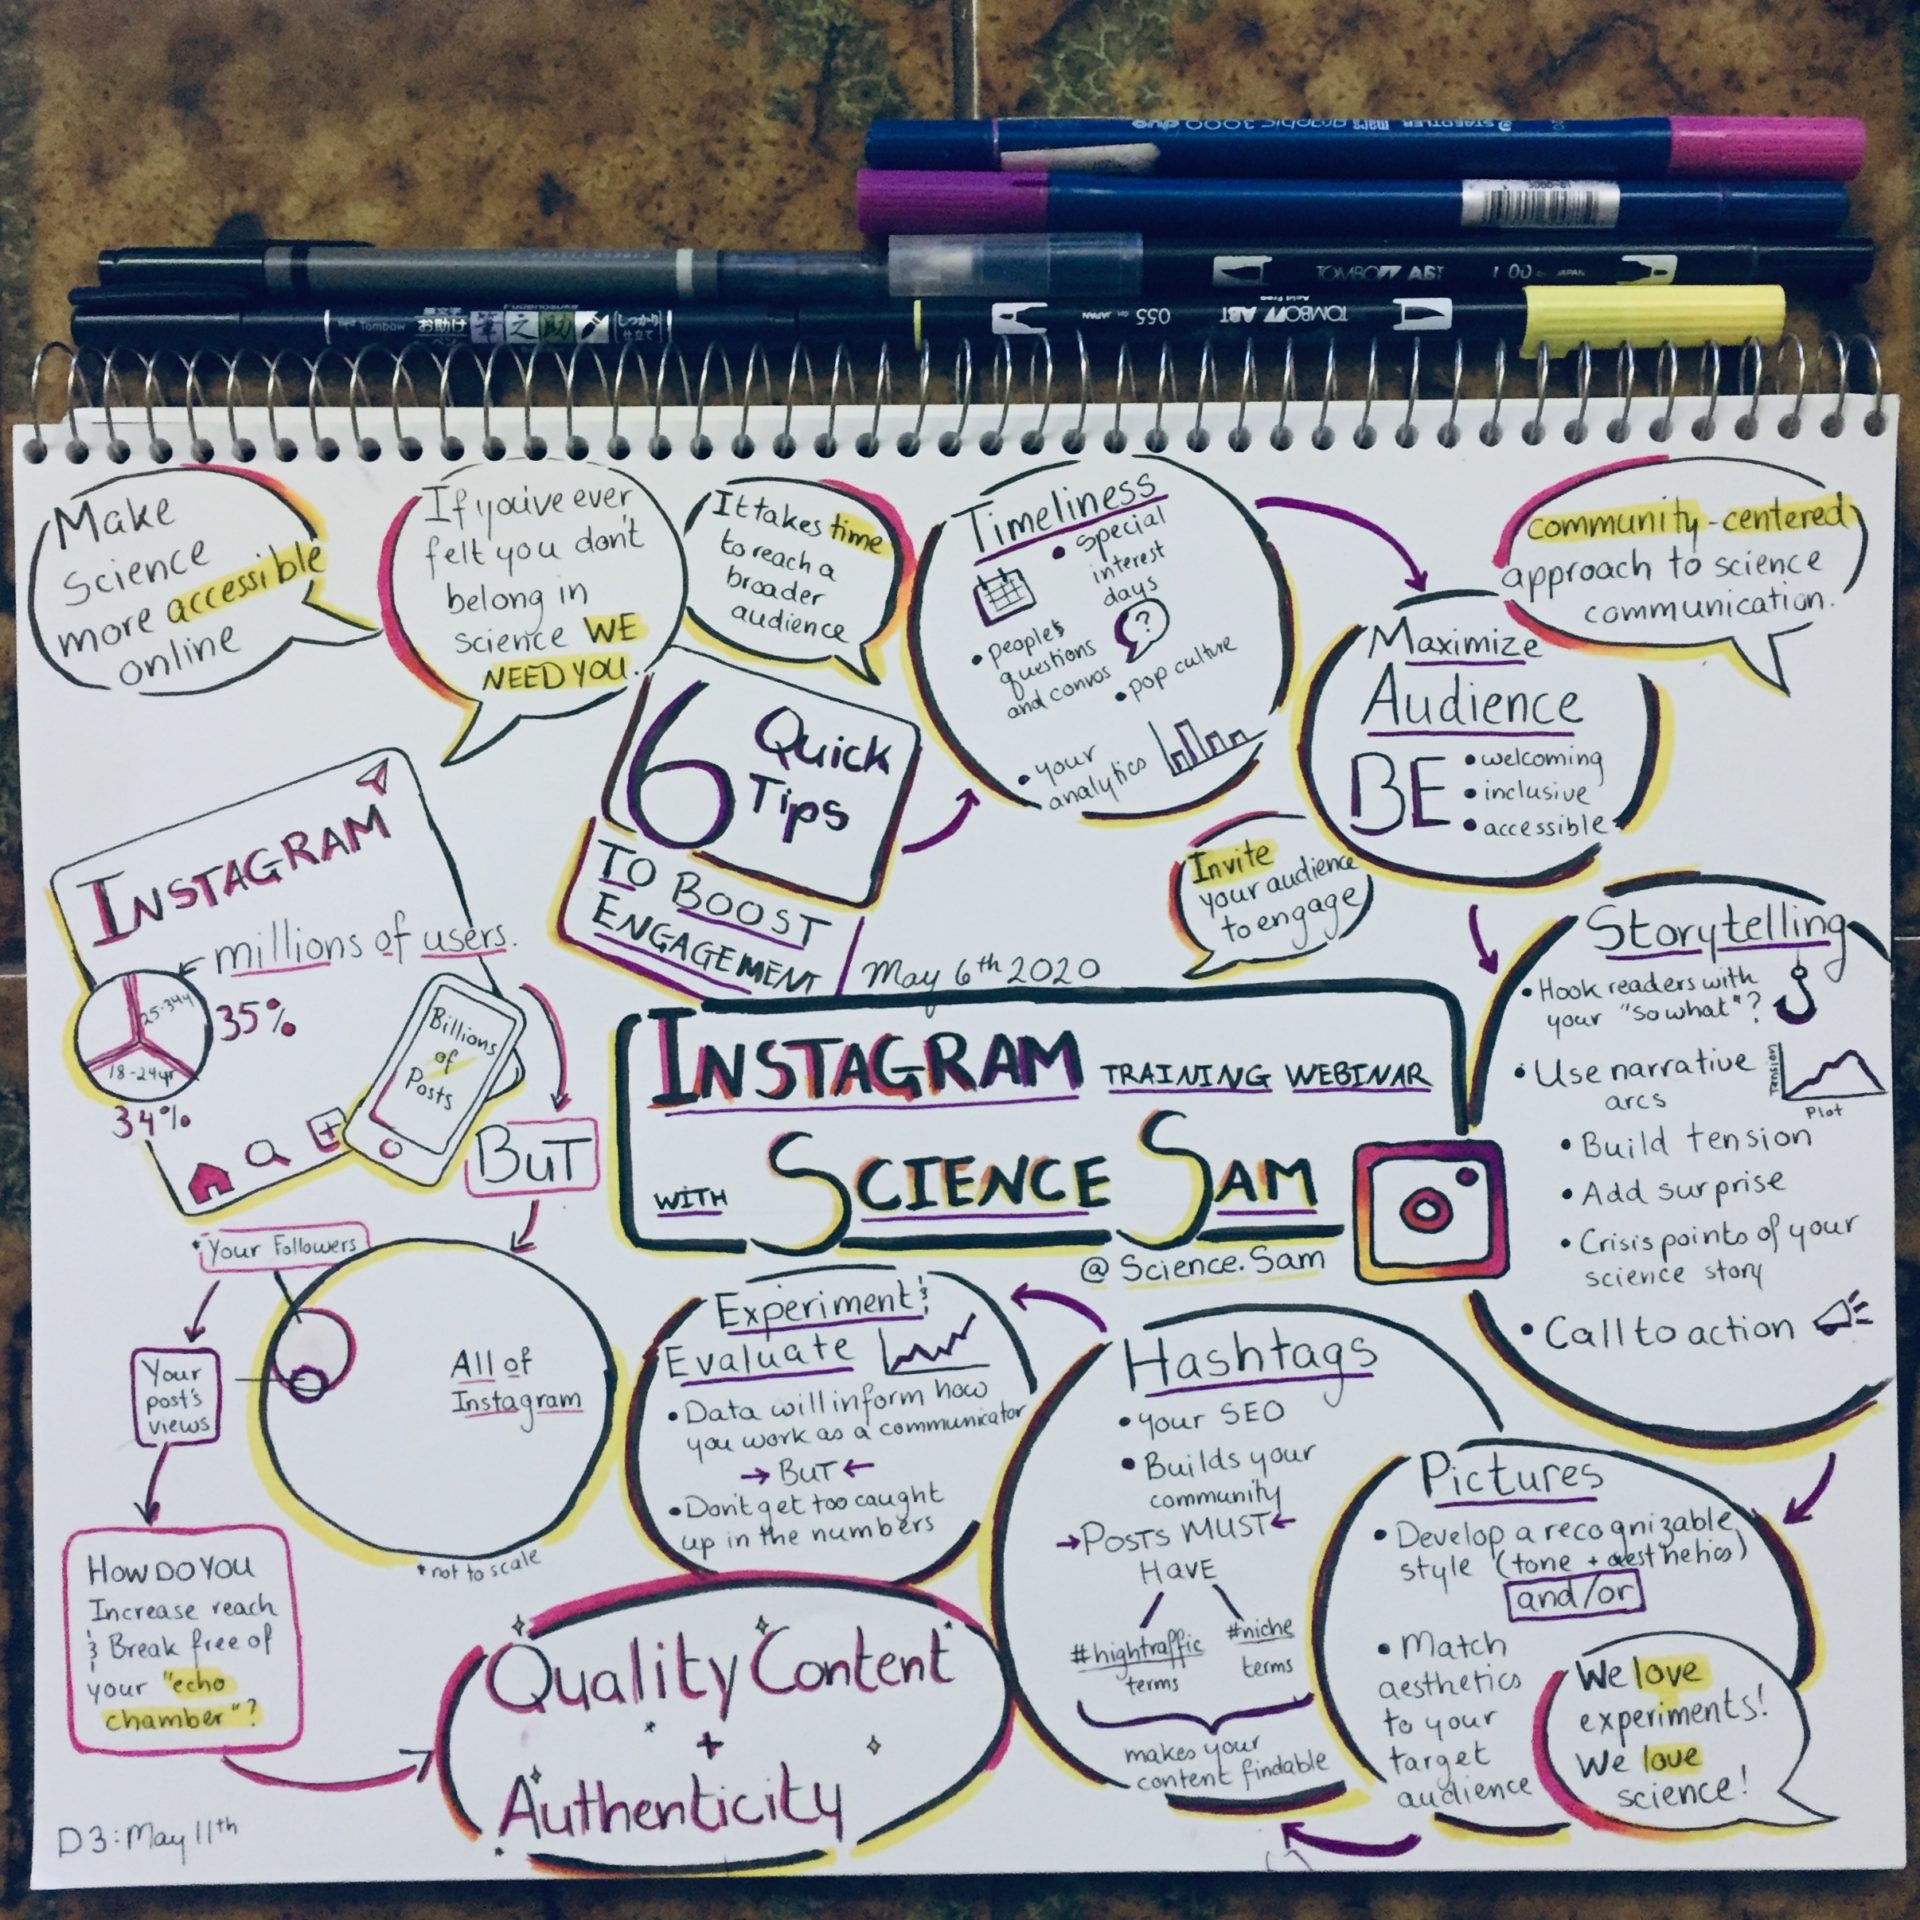 STAEDTLER mars graphic 3000 duo
TOMBOW ABT
JAPAN
Tombow
お助け
筆之助
しっかり
仕立て
055
JAPAN
TOMBOW ABT
Acid Free
Make
Science
more accessible
online
If you'ive ever
felt you don't
belong in
science WE
NEED YOU.
It takes time
to reach a
broader
audience
Timeliness
• special
interest
days
• people's
questions
and convos
?
• pop culture
• your
analytics
community-centered
approach to science
communication.
Maximize
Audience
BE
• welcoming
• inclusive
• accessible
6 Quick
Tips
TO BOOST
ENGAGEMENT
Invite
your audience
to engage
INSTAGRAM
millions of users.
25-34yr
35%
18-24yr
34%
Billions
of
Posts
BUT
May 6th 2020
INSTAGRAM TRAINING WEBINAR
WITH SCIENCE SAM
@ Science.Sam
Storytelling
• Hook readers with
your "so what"?
• Use narrative
arcs
Tension
Plot
• Build tension
• Add surprise
• Crisis points of your
science story
• Call to action
*Your Followers
Your
post's
views
All of
Instagram
*not to scale
HOW DO YOU
Increase reach
& Break free of
your "echo
chamber"?
Experiment &
Evaluate
• Data will inform how
you work as a communicator
→ BUT ←
• Don't get too caught
up in the numbers
Hashtags
• your SEO
• Builds your
community
→POSTS MUST←
HAVE
#hightraffic
terms
#niche
terms
makes your
content findable
Pictures
• Develop a recognizable
style (tone + aesthetics)
and/or
• Match
aesthetics
to your
target
audience
We love
experiments!
We love
science!
Quality Content
+
Authenticity
D3: May 11th